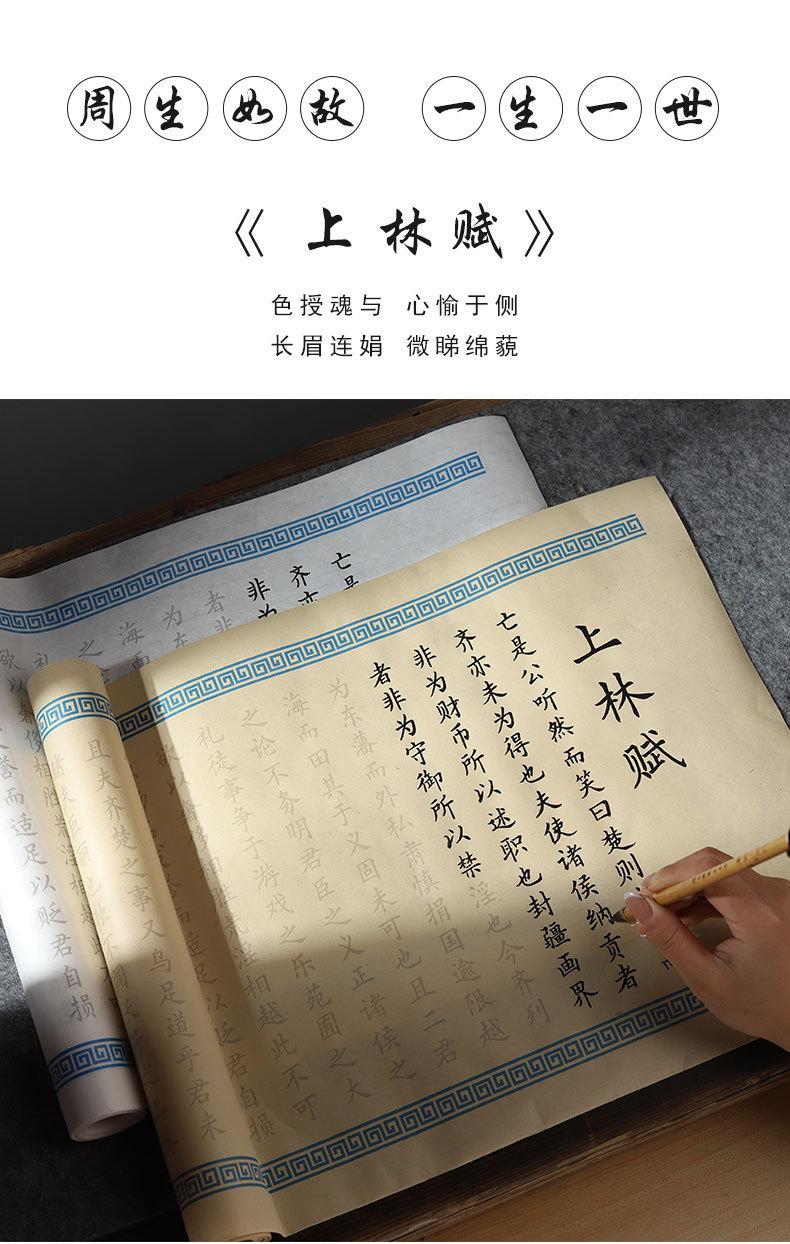 周生如故 一生一世
《上林赋》
色授魂与 心愉于侧
长眉连娟 微睇绵藐
上林赋
亡是公听然而笑曰楚则
齐亦未为得也夫使诸侯纳贡者
非为财币所以述职也封疆画界
者非为守御所以禁淫也今齐列
为东藩而外私肃慎捐国逾限越
海而田其于义固未可也且二君
之论不务明君臣之义正诸侯之
礼徒事争于游戏之乐苑囿之大
欲以奢侈相胜荒淫相越此不可
誉而适足以贬君自损
且夫齐楚之事又乌足道乎君未
亡是
齐亦
非为
者非
为东
海而
之论
礼
欲以奢侈相胜荒淫相越此不
誉而适足以贬君自损